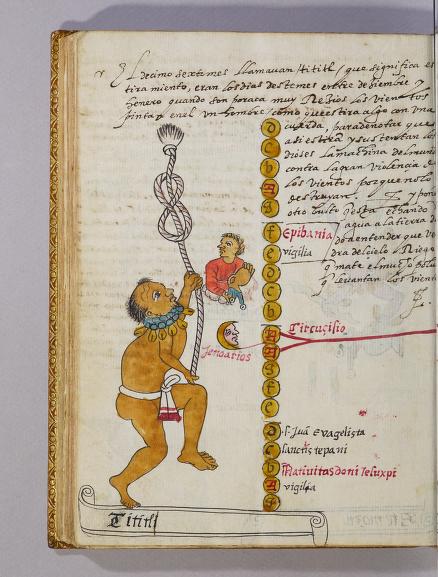 El decimo sextemes llamavan /tititl/ que significa es
tiramiento, eran los dias destemes entre deziembre y
henero quando son poraca muy Rezios los vientos
pintap enel un hombre / como que estira algo con una
cuerda, paradenotar que
asi estira y sustentan los
dioses la machina del mun
contra la gran violencia d
los vientos porque no lo
destruyan. y pon
otro bulto questa echando
agua a la tierra
dan a entender que ve
dra del cielo Riego
q mate el mu
q levantan los vien
d
c
b
A
g
f Epibania
e vigilia
d
c
b
A Circucisio
Jenoarios
A
g
f
e
d .s. Juā Evagelista
c sanctistepani
b Natiuitas doni Jesuxpi
A vigilia
g
Tititl